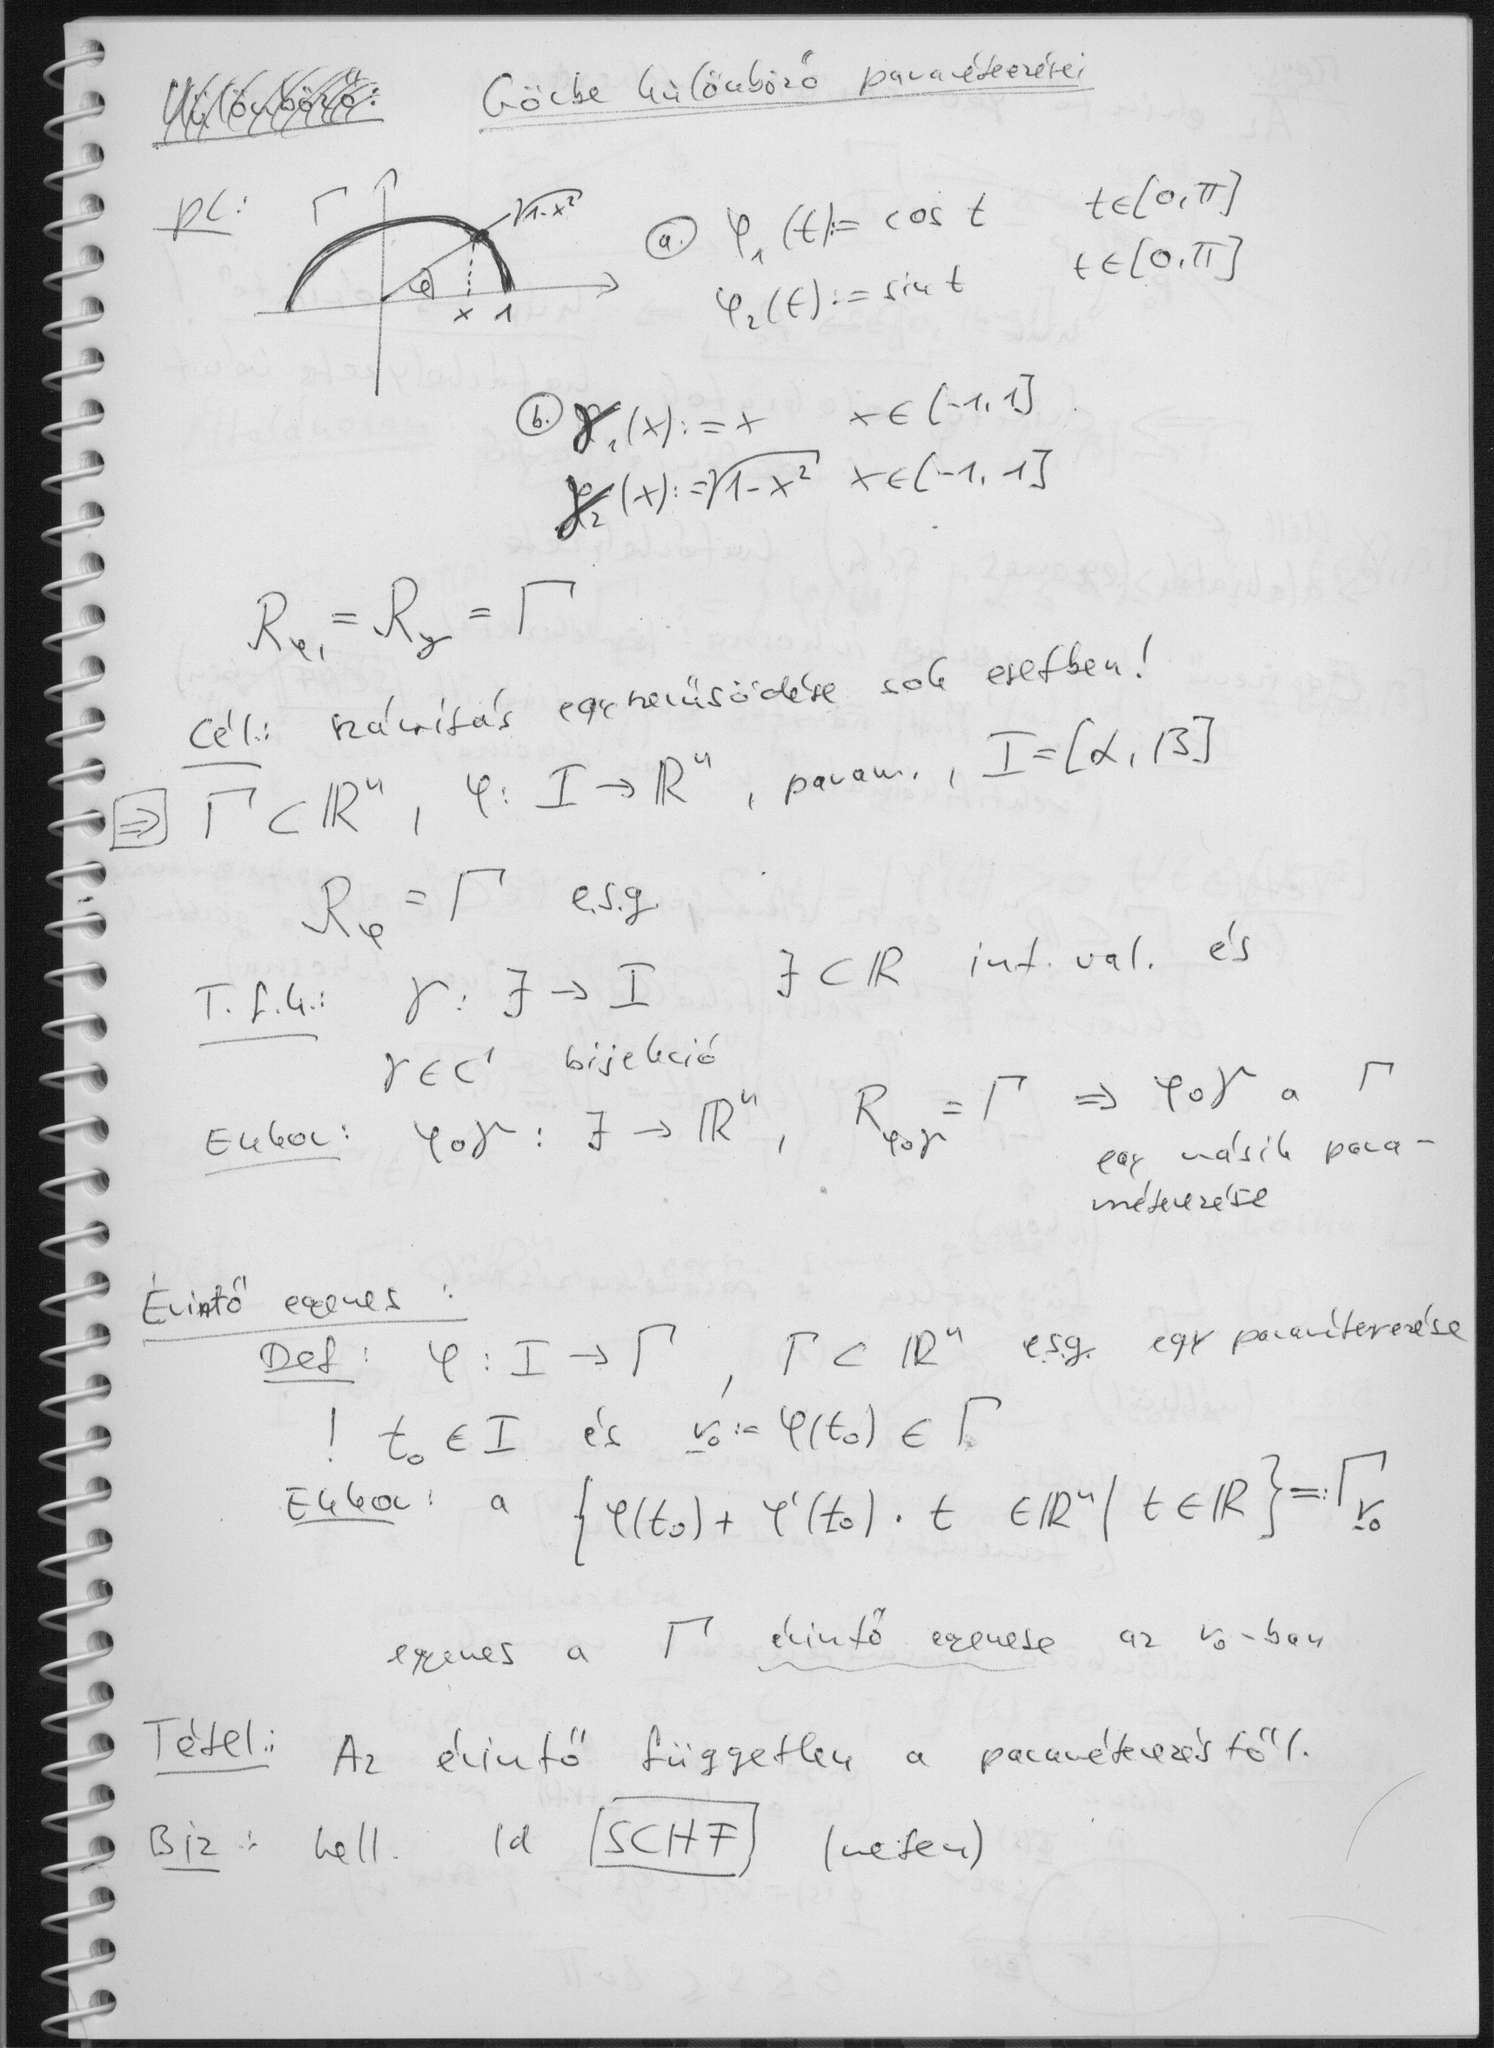 Különböző:
Görbe különböző paraméterezései
pl: Γ √1-x² φ x 1
a. φ₁(t):= cos t t∈[0,π]
φ₂(t):= sin t t∈[0,π]
b. γ₁(x):= x x∈[-1,1]
γ₂(x):= √1-x² x∈[-1,1]
R_φ₁ = R_γ = Γ
Cél: számítás egyszerűsödése sok esetben!
⇒ Γ⊂ℝⁿ, φ: I→ℝⁿ, param., I=[α,β]
R_φ = Γ e.s.g.
T.f.h.: γ: J→I J⊂ℝ int.val. és
γ∈C¹ bijekció
Ekkor: φ∘γ: J→ℝⁿ, R_φ∘γ = Γ ⇒ φ∘γ a Γ
egy másik para-
méterezése
Érintő egyenes:
Def: φ: I→Γ, Γ⊂ℝⁿ e.s.g. egy paraméterezése
! t₀∈I és r₀:= φ(t₀)∈Γ
Ekkor: a {φ(t₀)+φ'(t₀)·t ∈ℝⁿ| t∈ℝ}=:Γ_r₀
egyenes a Γ érintő egyenese az r₀-ban
Tétel: Az érintő független a paraméterezéstől.
Biz: kell. ld [SCHF] (neten)